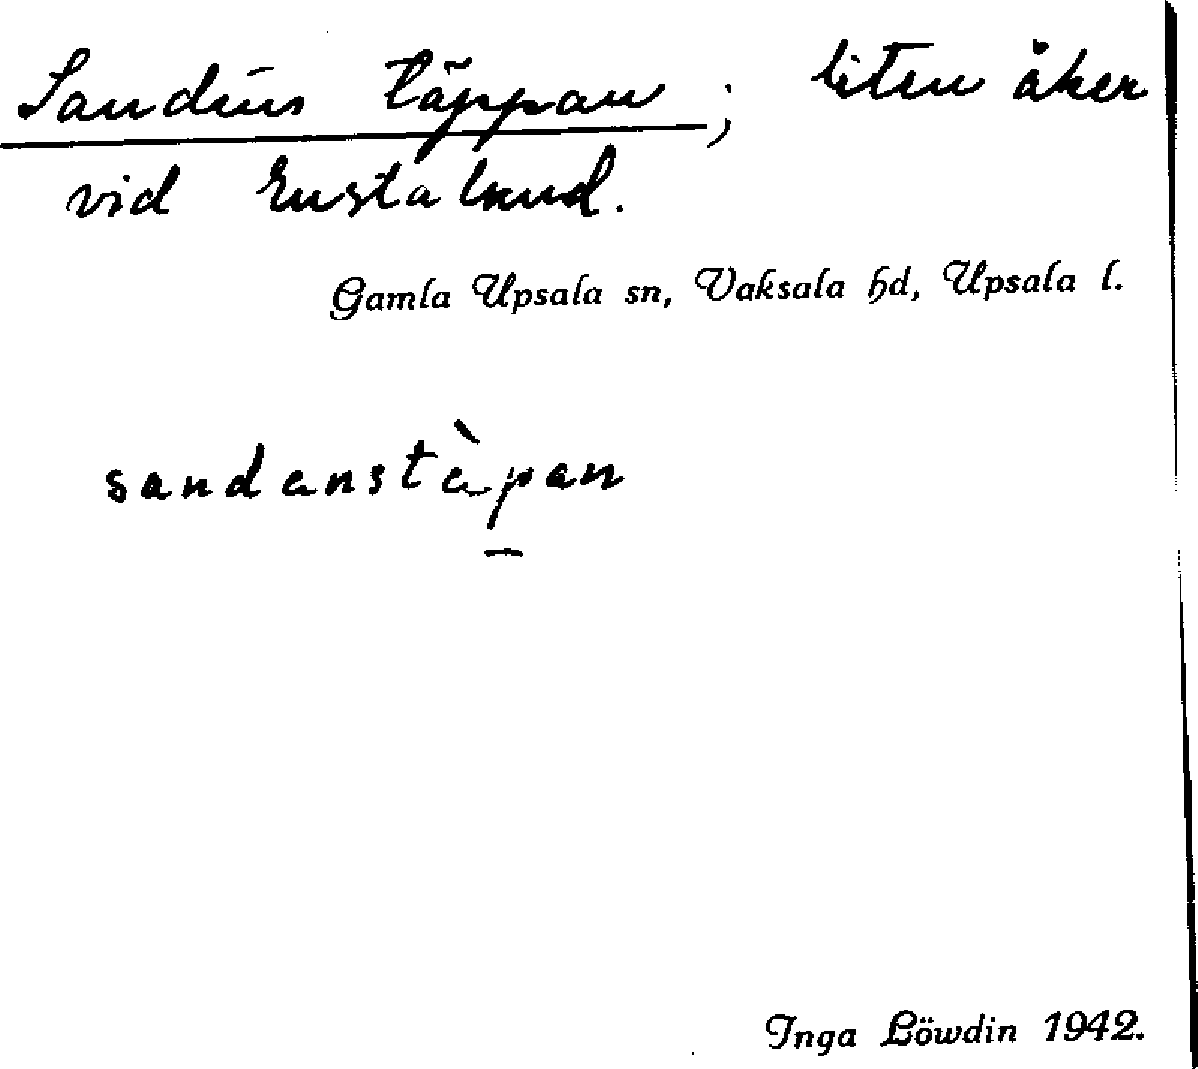 Sandéns täppan; liten åker
vid Enstalund.
Gamla Upsala sn, Vaksala hd, Upsala l.
sandanstàpan
Inga Löwdin 1942.